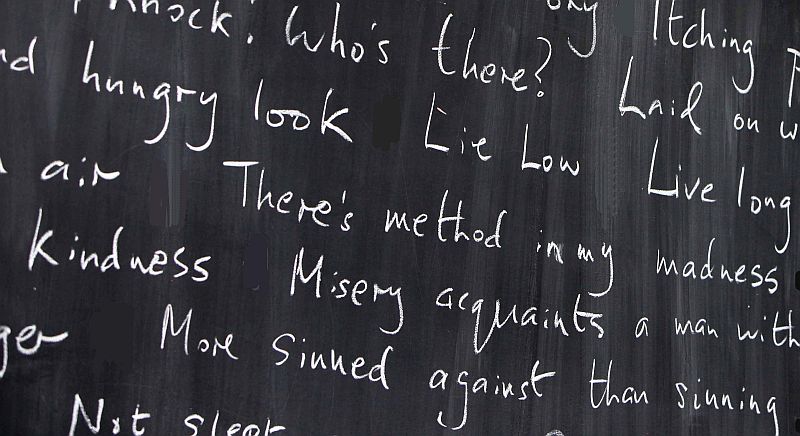 Knock! Who's there? Itching
hungry look Lie Low Laid on
air There's method in my madness Live long
Kindness Misery acquaints a man with
More sinned against than sinning
Not slept